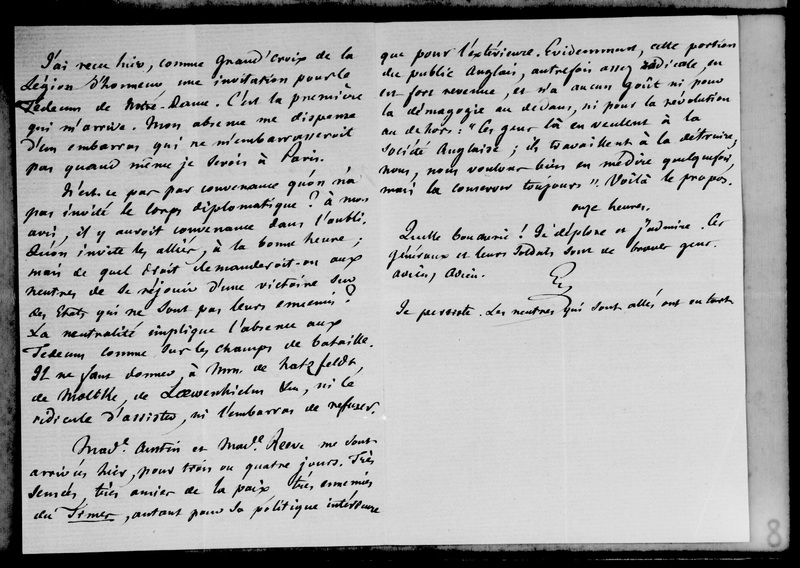 J'ai reçu hier, comme grand'croix de la
Légion d'honneur, une invitation pour le
Tedeum de Notre-Dame. C'est la première
qui m'arrive. Mon absence me dispense
d'un embarras qui ne m'embarrasseroit
pas quand même je serois à Paris.
N'est-ce pas par convenance qu'on n'a
pas invité le corps diplomatique ? à mon
avis, il y auroit convenance dans l'oubli.
Qu'on invite les alliés, à la bonne heure ;
mais de quel droit demanderoit-on aux
neutres de se réjouir d'une victoire sur
des Etats qui ne sont pas leurs ennemis ?
La neutralité implique l'absence aux
Tedeums comme sur les champs de bataille.
Il ne faut donner, à Mrs. de Hatzfeldt,
de Moltke, de Loewenhielm &c, ni le
ridicule d'assister, ni l'embarras de refuser.
Made. Austin et Made. Reeve me sont
arrivées hier, pour trois ou quatre jours. Très
sensées, très amies de la paix très ennemies
du Times, autant pour sa politique intérieure
que pour l'extérieure. Evidemment, cette portion
du public Anglais, autrefois assez radicale, en
est fort revenue, et n'a aucun goût ni pour
la démagogie au dedans, ni pour la révolution
au dehors : "Ces gens là en veulent à la
société Anglaise ; ils travaillent à la détruire ;
nous, nous voulons bien en médire quelquefois,
mais la conserver toujours". Voilà le propos.
onze heures.
Quelle boucherie ! Je déplore et j'admire. Ces
généraux et leurs soldats sont de braves gens.
adieu, Adieu.
G
Je persiste. Les neutres qui sont allés ont eu tort.
8